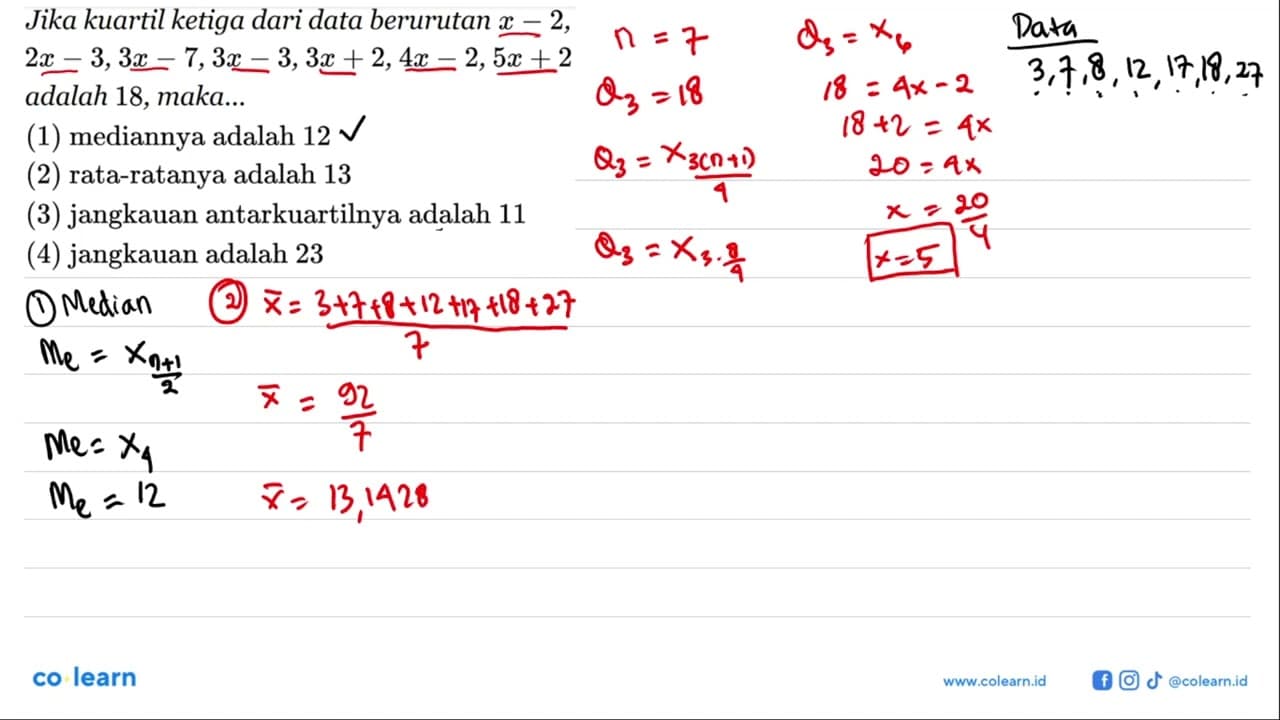 Jika kuartil ketiga dari data berurutan x − 2,
2x − 3, 3x − 7, 3x − 3, 3x + 2, 4x − 2, 5x + 2
adalah 18, maka...
(1) mediannya adalah 12 ✓
(2) rata-ratanya adalah 13
(3) jangkauan antarkuartilnya adalah 11
(4) jangkauan adalah 23
n = 7
Q₃ = 18
Q₃ = x_(3(n+1)/4)
Q₃ = x_(3·8/4)
Q₃ = x₆
18 = 4x − 2
18 + 2 = 4x
20 = 4x
x = 20/4
x = 5
Data
3, 7, 8, 12, 17, 18, 27
① Median
Me = x_((n+1)/2)
Me = x₄
Me = 12
② x̄ = (3+7+8+12+17+18+27)/7
x̄ = 92/7
x̄ = 13,1428
co·learn
www.colearn.id
@colearn.id